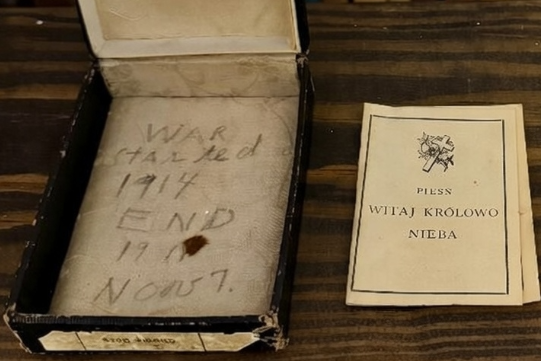 WAR
started
1914
END
19
PIEŚŃ
WITAJ KRÓLOWO
NIEBA